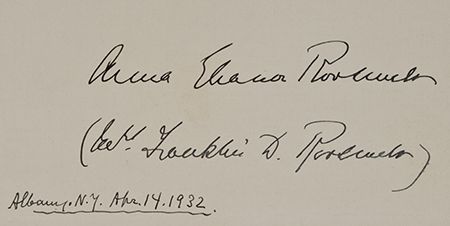 Anna Eleanor Roosevelt
(Mrs. Franklin D. Roosevelt)
Albany, N.Y. Apr. 14. 1932.